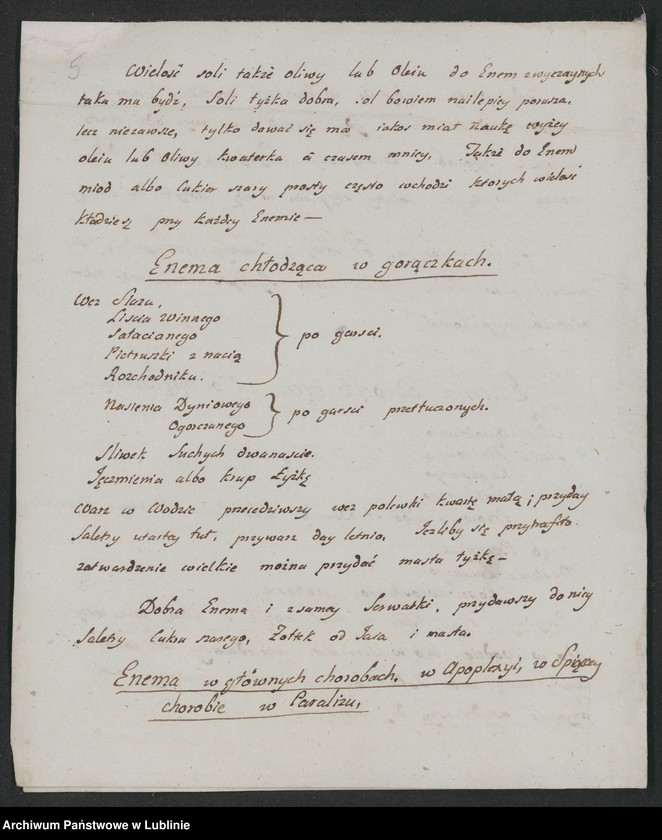 5
Wielość soli także oliwy lub Oleiu do Enem zwyczaynych
taka ma bydź, Soli łyżka dobra, sol bowiem nailepiey porusza,
lecz niezawsze, tylko dawać się ma iakos miał naukę wyżey
oleiu lub Oliwy kwaterka a czasem mniey, Także do Enem
miod albo Cukier szary prosty często wchodzi ktorych wielość
kładzie się przy każdey Enemie —
Enema chłodząca w gorączkach.
Wez Slazu,
Liscia Winnego
Sałacianego
Pietruszki z nacią
Rozchodniku.
po garsci.
Nasienia Dyniowego
Ogorczanego
po garsci przetłuczonych.
Sliwek Suchych dwanascie.
Jęczmienia albo krup Łyżkę
Warz w Wodzie przecedziwszy wez polewki kwartę małą; przyday
Saletry utartey łut, przywarz day letnio, Jeżliby się przytrafiło
zatwardzenie wielkie można przydać masła łyżkę —
Dobra Enema i zsamey Serwatki, przydawszy do niey
Saletry Cukru szarego, Żołtek od Jaia i masła.
Enema w głównych chorobach, w Apoplexyi, w Spiączey
chorobie w Paraliżu,
Archiwum Państwowe w Lublinie